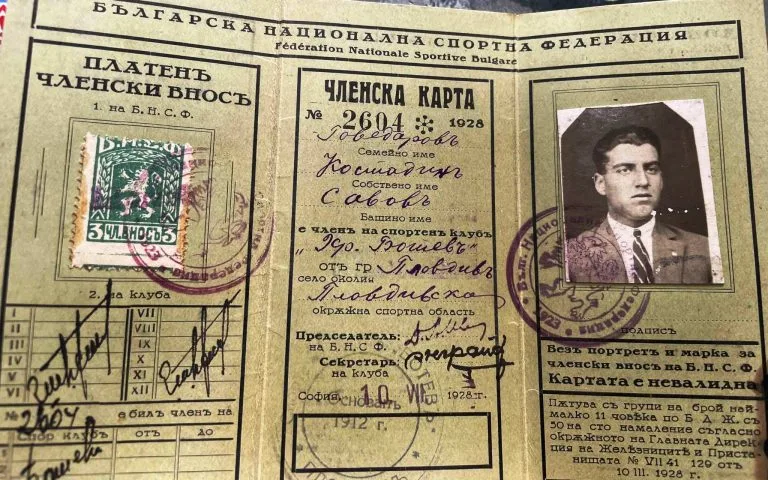 БЪЛГАРСКА НАЦИОНАЛНА СПОРТНА ФЕДЕРАЦИЯ
Fédération Nationale Sportive Bulgare
ПЛАТЕНЪ
ЧЛЕНСКИ ВНОСЪ
1. на Б. Н. С. Ф.
Б.Н.С.Ф
3 ЧЛ.ВНОСЪ 3
2. на клуба
I VII
II VIII
III IX
IV X
V XI
VI XII
№ 2604 е билъ членъ на
Спор. клубъ отъ до
ЧЛЕНСКА КАРТА
№ 2604 ✻ 1928
Говедаровъ
Семейно име
Костадинъ
Собствено име
Савовъ
Бащино име
е членъ на спортенъ клубъ
отъ гр. Пловдивъ
село околия
Пловдивска
окрѫжна спортна область
Председатель:
на Б. Н. С. Ф.
Секретарь
на клуба
София, 10 VII 1928 г.
Основанъ
1912 г.
подпись
Безъ портретъ и марка за
членски вносъ на Б. Н. С. Ф.
Картата е невалидна
Пѫтува съ групи на брой най-
малко 11 човѣка по Б. Д. Ж. съ
50 на сто намаление съгласно
окрѫжното на Главната Дирек
ция на Желѣзниците и Приста-
нищата № VII 41 129 отъ
10 III. 1928 г.